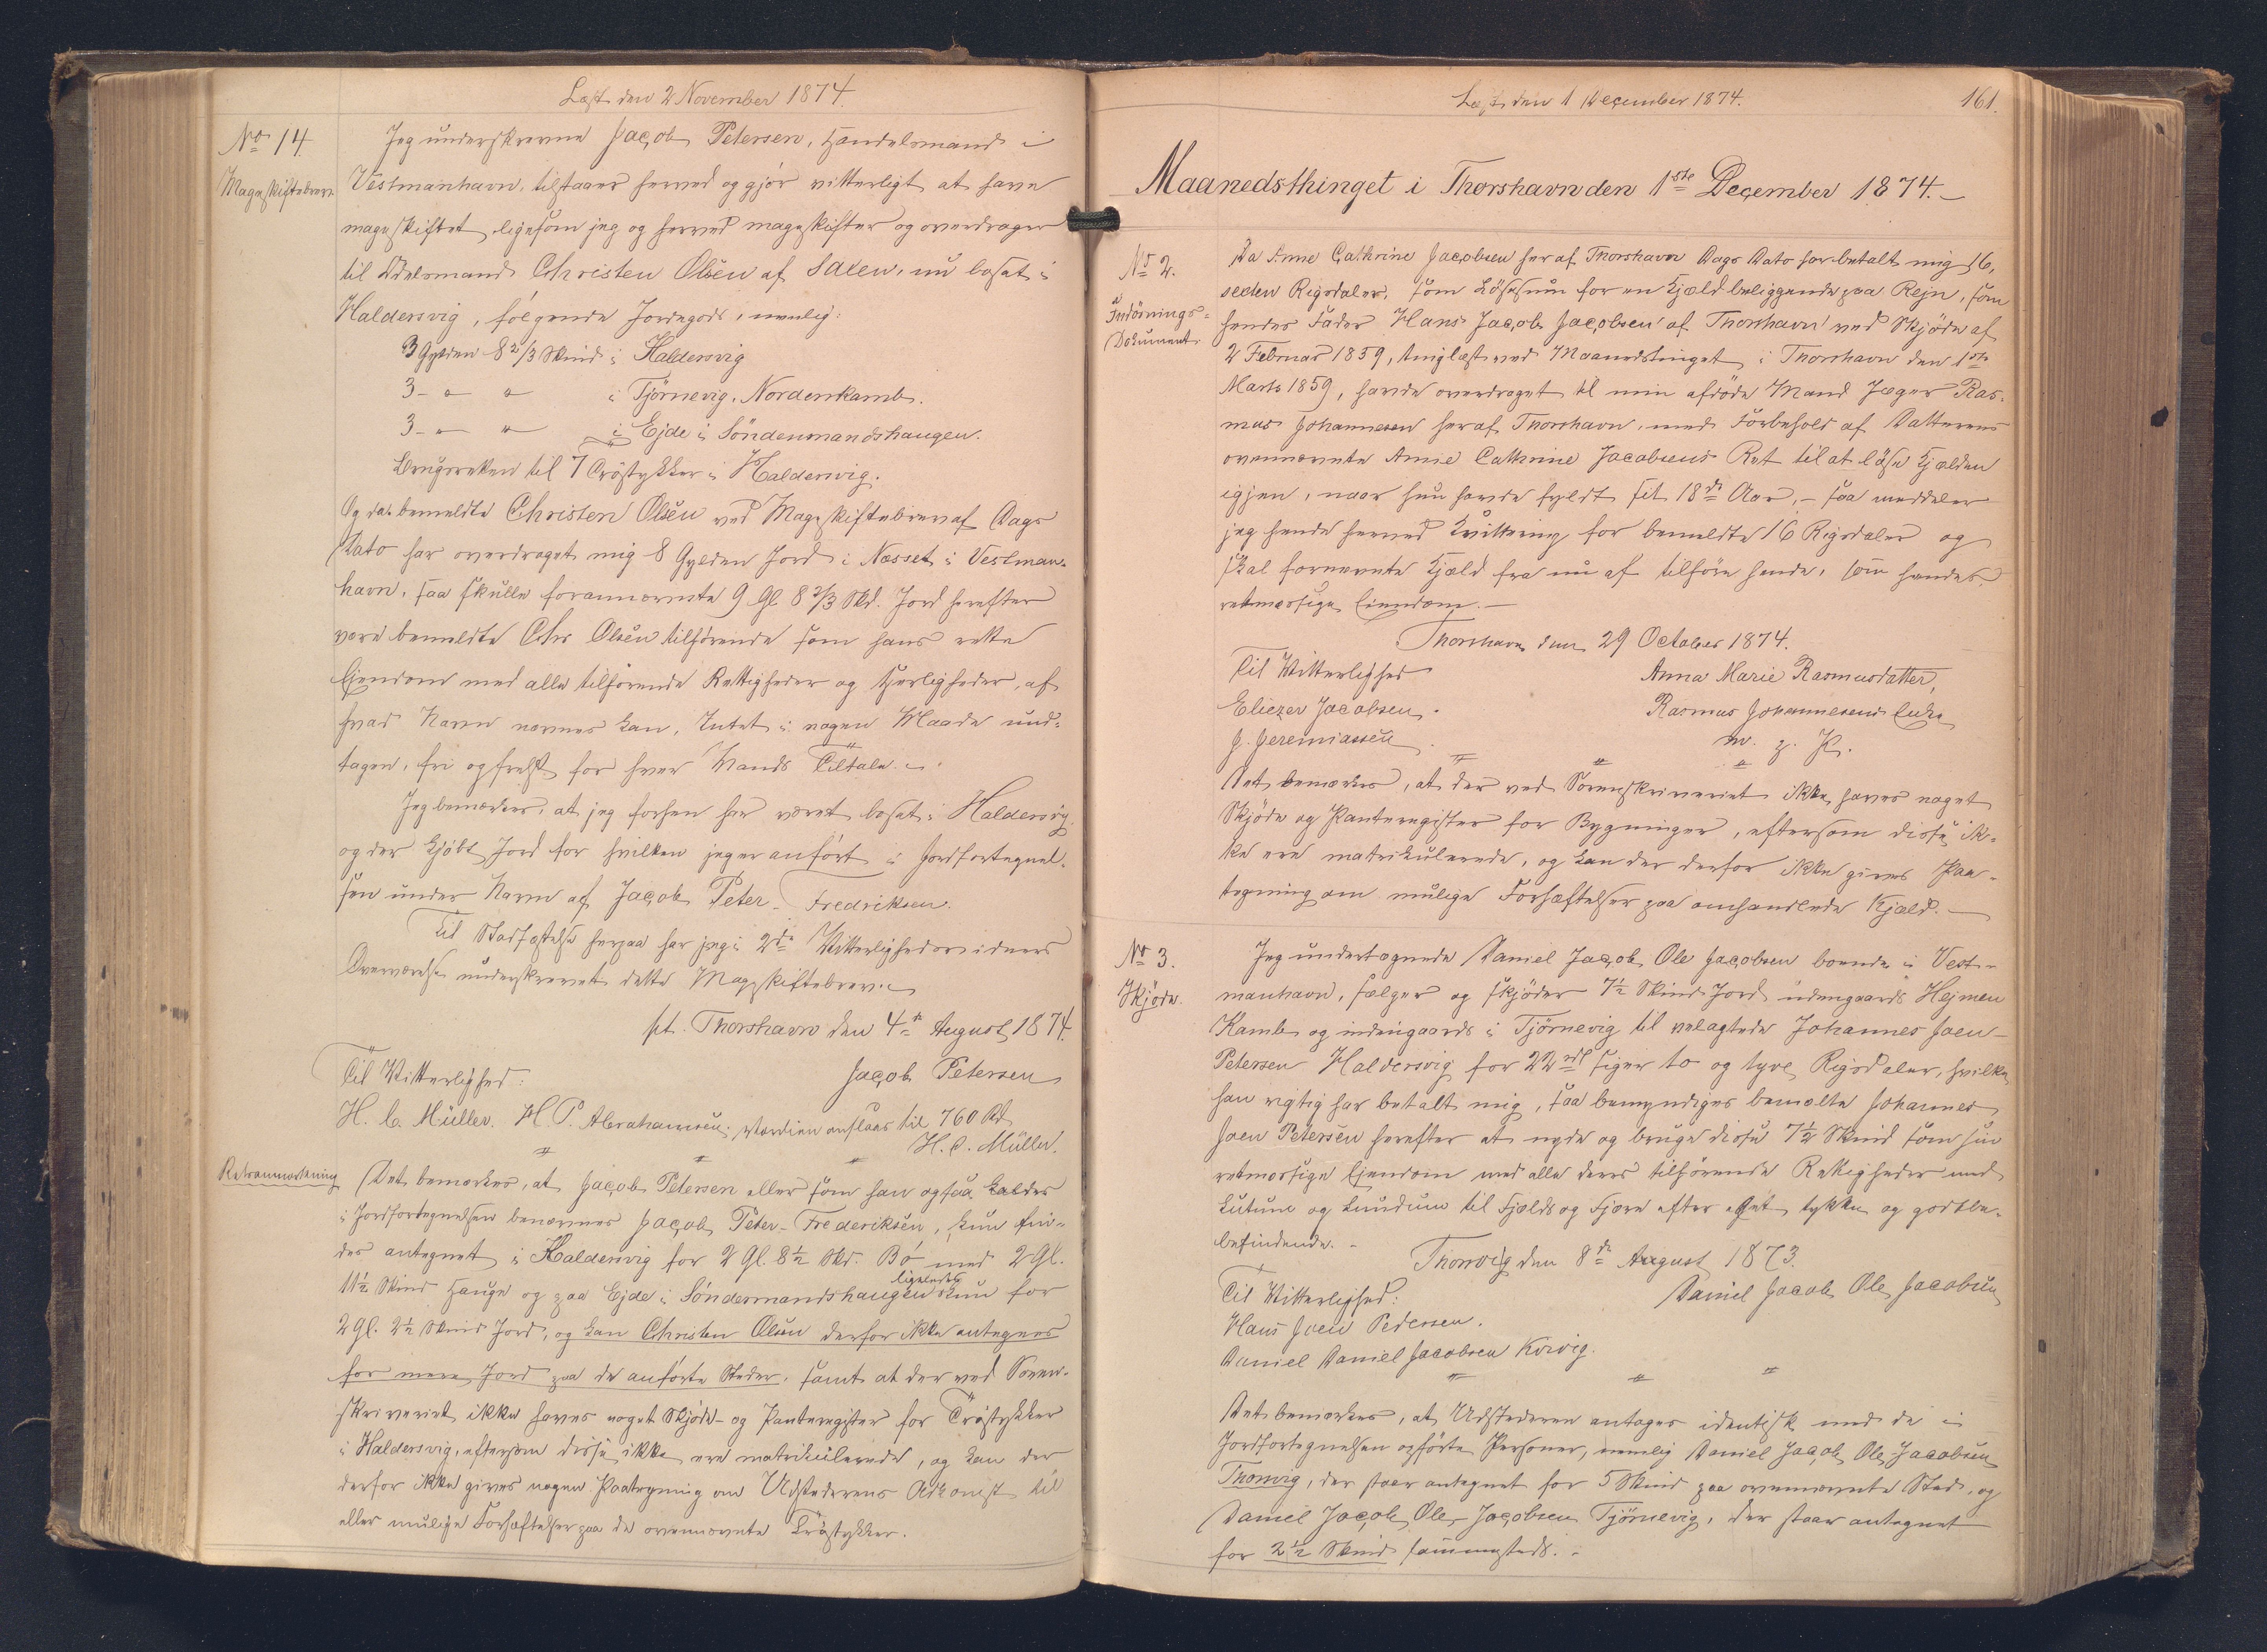 Læst den 2 November 1874.
No 14.
Mageskiftebrev.
Jeg underskrevne Jacob Petersen, Handelsmand i
Vestmanhavn, tilstaaer herved og gjør vitterligt at have
mageskiftet, ligesom jeg og herved mageskifter og overdrager
til Odelsmand Christen Olsen af Saxen, nu bosat i
Haldersvig, følgende Jordegods, nemlig:
3 Gylden 8 2/3 Skind i Haldersvig
3 - " " i Tjörnevig, Nordenkamb.
3 - " " i Ejde i Söndenmandshaugen.
Brugsretten til 7 Tröstykker i Haldersvig.
Og da bemeldte Christen Olsen ved Mageskiftebrev af Dags
Dato har overdraget mig 8 Gylden Jord i Næsset i Vestman-
havn, saa skulle forannævnte 9 Gl 8 2/3 Skd. Jord herefter
være bemeldte Chr Olsen tilhørende som hans rette
Ejendom med alle tilhørende Rettigheder og Herligheder, af
hvad Navn nævnes kan, Intet i nogen Maade und-
tagen, fri og frelst for hver Mands Tiltale.
Jeg bemærker, at jeg forhen har været bosat i Haldersvig
og der kjøbt Jord for hvilken jeg er anført i Jordfortegnel-
sen under Navn af Jacob Peter Fredriksen.
Til Stadfæstelse herpaa har jeg i 2de Vitterlighedsvidners
Overværelse underskrevet dette Mageskiftebrev.
pt. Thorshavn den 4de August 1874.
Til Vitterlighed: Jacob Petersen
H. C. Müller. H. P. Abrahamsen. Værdien anslaaes til 760 Rd
H. C. Müller.
Retsanmærkning
Det bemærkes, at Jacob Petersen eller som han ogsaa kaldes
i Jordfortegnelsen benævnes Jacob Peter Frederiksen, kun fin-
des antegnet i Haldersvig for 2 Gl. 8 1/2 Skd. Bö med 2 Gl.
11 1/2 Skind Hauge og paa Ejde i Söndermandshaugen ligeledes kun for
2 Gl. 2 1/2 Skind Jord, og kan Christen Olsen derfor ikke antegnes
for mere Jord paa de anførte Steder, samt at der ved Soren-
skriveriet ikke haves noget Skjöde- og Panteregister for Tröstykker
i Haldersvig, eftersom disse ikke ere matrikulerede, og kan der
derfor ikke gives nogen Paategning om Udstederens Adkomst til
eller mulige Forhæftelser paa de ovennævnte Tröstykker.
Læst den 1 December 1874.
161.
Maanedsthinget i Thorshavn den 1ste December 1874.
No 2.
Indløsnings-
Dokument.
Da Anne Cathrine Jacobsen her af Thorshavn Dags Dato har betalt mig 16,
sexten Rigsdaler, som Lösesum for en Kjæld beliggende paa Rejn, som
hendes Fader Hans Jacob Jacobsen af Thorshavn ved Skjöde af
2 Februar 1859, thinglæst ved Maanedstinget i Thorshavn den 1ste
Marts 1859, havde overdraget til min afdöde Mand Jæger Ras-
mus Johannesen her af Thorshavn, med Forbehold af Datterens
ovennævnte Anne Cathrine Jacobsens Ret til at löse Kjælden
igjen, naar hun havde fyldt sit 18de Aar, - saa meddeler
jeg hende herved Kvittering for bemeldte 16 Rigsdaler og
skal fornævnte Kjæld fra nu af tilhöre hende, som hendes
retmæssige Eiendom. -
Thorshavn den 29 October 1874.
Til Vitterlighed Anna Marie Rasmusdatter,
Eliezer Jacobsen. Rasmus Johannesens Enke
J. Jeremiassen m. p. P.
Det bemærkes, at der ved Sorenskriveriet ikke haves noget
Skjöde og Panteregister for Bygninger, eftersom disse ik-
ke ere matrikulerede, og kan der derfor ikke gives Paa-
tegning om mulige Forhæftelser paa omhandlede Kjæld. -
No 3.
Skjöde.
Jeg undertegnede Daniel Jacob Ole Jacobsen boende i Vest-
manhavn, sælger og skjöder 7 1/2 Skind Jord udengaards Hejmen
Kamb og indengaards i Tjörnevig til velagtede Johannes Joen
Petersen Haldersvig for 22 rdl siger to og tyve Rigsdaler, hvilke
han rigtig har betalt mig, saa bemyndiges bemælte Johannes
Joen Petersen herefter at nyde og bruge disse 7 1/2 Skind som sin
retmæssige Ejendom med alle deres tilhörende Rettigheder med
Lutum og Lundum til Fjælds og Fjære efter eget tykke og godtbe-
befindende. -
Thorsvig den 8de August 1873.
Til Vitterlighed: Daniel Jacob Ole Jacobsen
Hans Joen Pedersen.
Daniel Daniel Jacobsen Kvivig.
Det bemærkes, at Udstederen antages identisk med de i
Jordfortegnelsen opførte Personer, nemlig Daniel Jacob Ole Jacobsen
Thorsvig, der staar antegnet for 5 Skind paa ovennævnte Sted, og
Daniel Jacob Ole Jacobsen Tjörnevig, der staar antegnet
for 2 1/2 Skind sammesteds. -